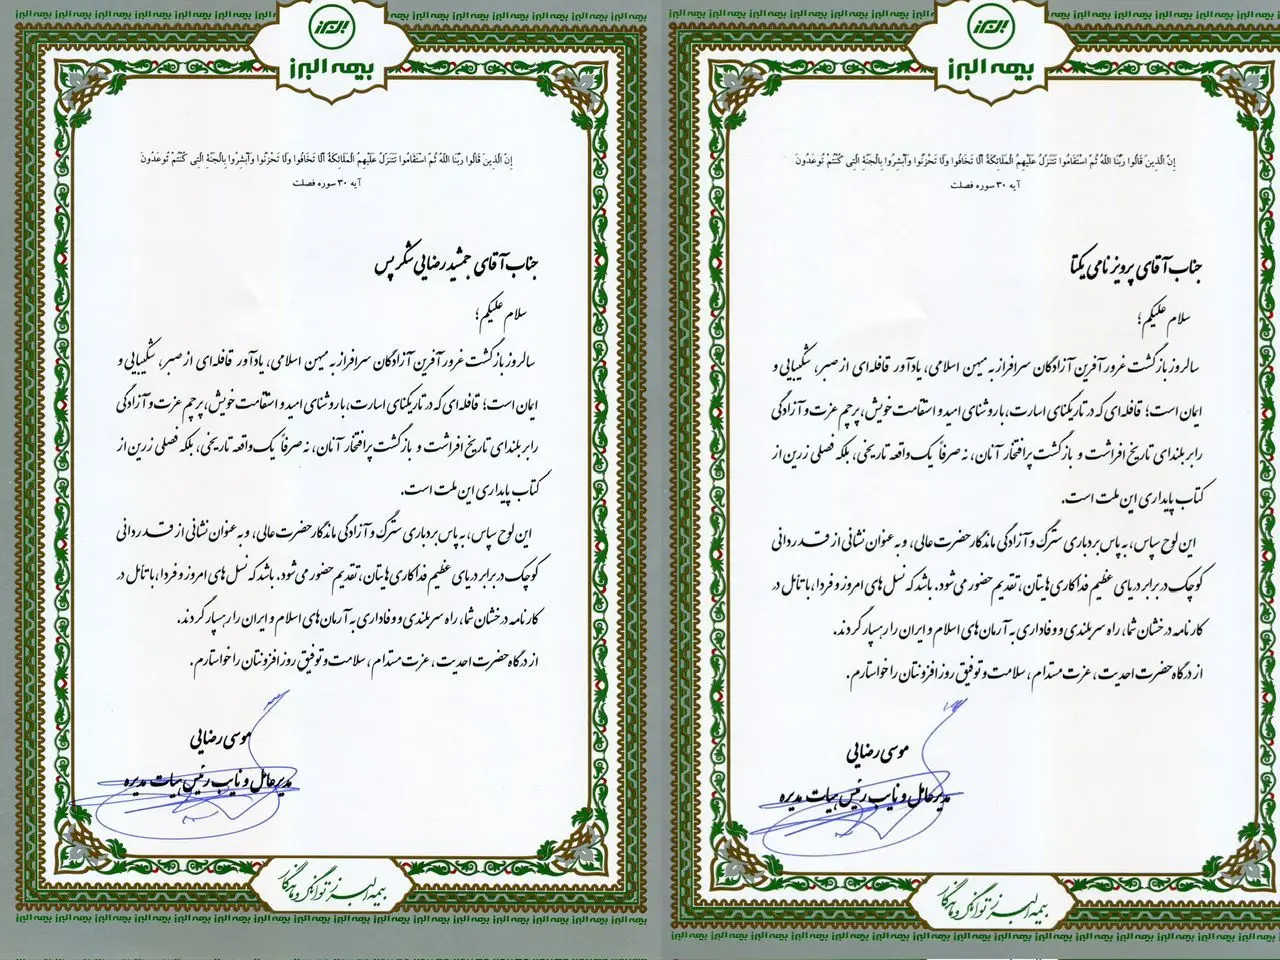 البرز
بیمه البرز
إِنَّ الَّذِينَ قَالُوا رَبُّنَا اللَّهُ ثُمَّ اسْتَقَامُوا تَتَنَزَّلُ عَلَيْهِمُ الْمَلَائِكَةُ أَلَّا تَخَافُوا وَلَا تَحْزَنُوا وَأَبْشِرُوا بِالْجَنَّةِ الَّتِي كُنْتُمْ تُوعَدُونَ
آیه ۳۰ سوره فصلت
جناب آقای جمشید رضایی شکرپس
سلام علیکم؛
سالروز بازگشت غرورآفرین آزادگان سرافراز به میهن اسلامی، یادآور قافله‌ای از صبر، شکیبایی و
ایمان است؛ قافله‌ای که در تاریکنای اسارت، با روشنای امید و استقامت خویش، پرچم عزت و آزادگی
را بر بلندای تاریخ افراشت و بازگشت پرافتخار آنان، نه صرفاً یک واقعه تاریخی، بلکه فصلی زرین از
کتاب پایداری این ملت است.
این لوح سپاس، به پاس بردباری سترگ و آزادگی ماندگار حضرت عالی، و به عنوان نشانی از قدردانی
کوچک در برابر دریای عظیم فداکاری هایتان، تقدیم حضور می شود. باشد که نسل های امروز و فردا، با تأمل در
کارنامه درخشان شما، راه سربلندی و وفاداری به آرمان های اسلام و ایران را رهسپار گردند.
از درگاه حضرت احدیت، عزت مستدام، سلامت و توفیق روزافزونتان را خواستارم.
موسی رضایی
مدیرعامل و نایب رئیس هیات مدیره
بیمه البرز توانگر و ماندگار
البرز
بیمه البرز
إِنَّ الَّذِينَ قَالُوا رَبُّنَا اللَّهُ ثُمَّ اسْتَقَامُوا تَتَنَزَّلُ عَلَيْهِمُ الْمَلَائِكَةُ أَلَّا تَخَافُوا وَلَا تَحْزَنُوا وَأَبْشِرُوا بِالْجَنَّةِ الَّتِي كُنْتُمْ تُوعَدُونَ
آیه ۳۰ سوره فصلت
جناب آقای پرویز نامی یکتا
سلام علیکم؛
سالروز بازگشت غرورآفرین آزادگان سرافراز به میهن اسلامی، یادآور قافله‌ای از صبر، شکیبایی و
ایمان است؛ قافله‌ای که در تاریکنای اسارت، با روشنای امید و استقامت خویش، پرچم عزت و آزادگی
را بر بلندای تاریخ افراشت و بازگشت پرافتخار آنان، نه صرفاً یک واقعه تاریخی، بلکه فصلی زرین از
کتاب پایداری این ملت است.
این لوح سپاس، به پاس بردباری سترگ و آزادگی ماندگار حضرت عالی، و به عنوان نشانی از قدردانی
کوچک در برابر دریای عظیم فداکاری هایتان، تقدیم حضور می شود. باشد که نسل های امروز و فردا، با تأمل در
کارنامه درخشان شما، راه سربلندی و وفاداری به آرمان های اسلام و ایران را رهسپار گردند.
از درگاه حضرت احدیت، عزت مستدام، سلامت و توفیق روزافزونتان را خواستارم.
موسی رضایی
مدیرعامل و نایب رئیس هیات مدیره
بیمه البرز توانگر و ماندگار